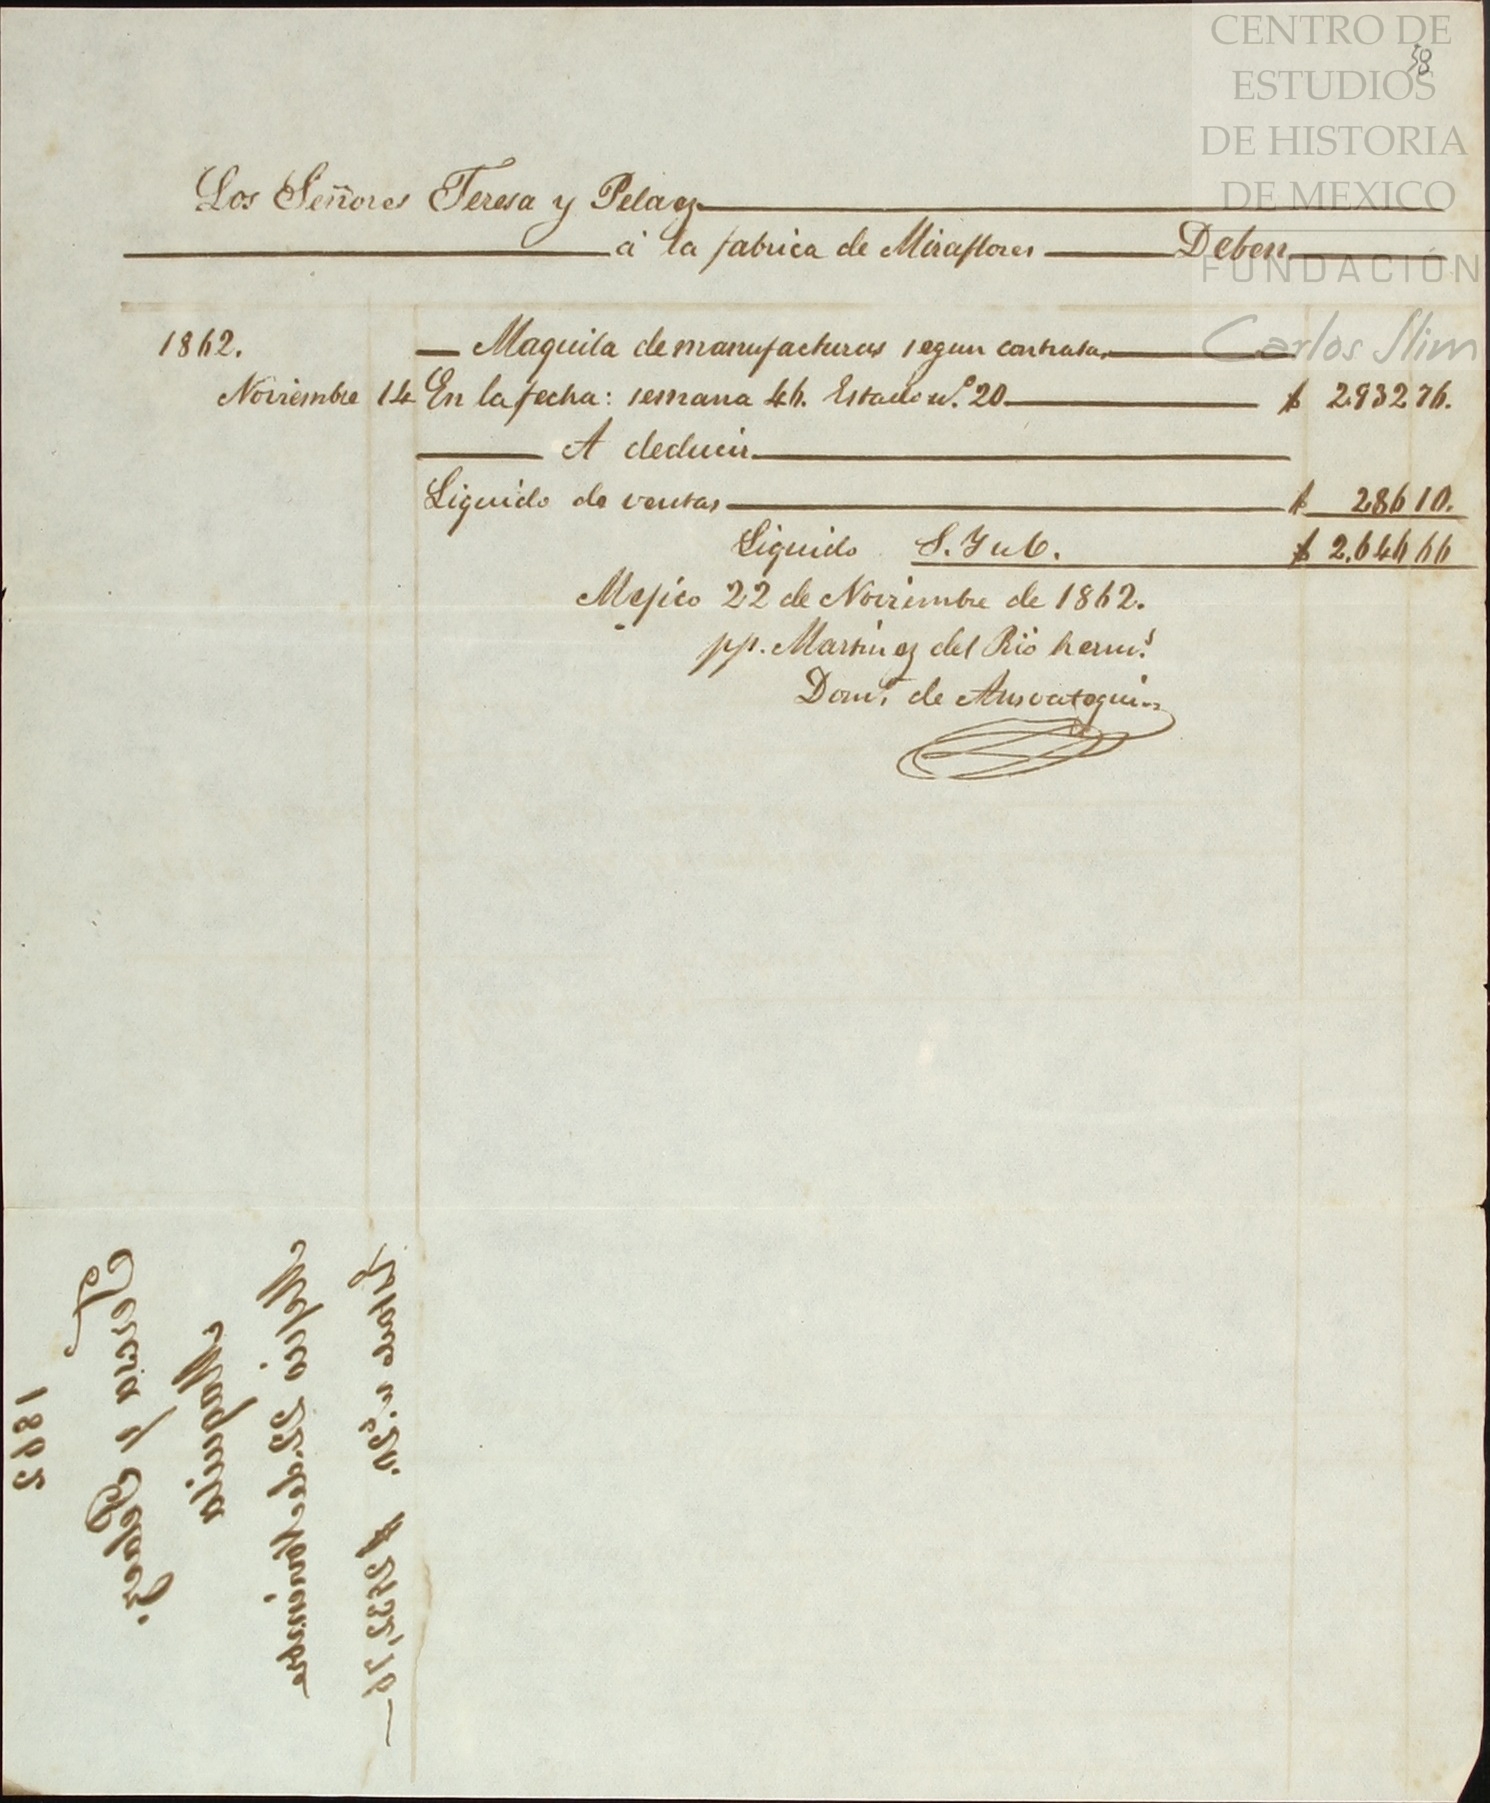 CENTRO DE
ESTUDIOS
DE HISTORIA
DE MEXICO
FUNDACIÓN
Carlos Slim
38
Los Señores Teresa y Pelaez
á la fabrica de Miraflores Deben
1862. Maquila de manufacturas segun contrata
Noviembre 14 En la fecha: semana 46. Estado n.º 20 $ 2.932 76.
A deducir
Liquido de ventas $ 286 10.
Liquido S. Y u O. $ 2.646 66
Mejico 22 de Noviembre de 1862.
pp. Martinez del Rio herm.s
Dom.º de Ansoategui
1862
Teresa y Pelaez.
Maquila
Mejico 22 de Noviembre